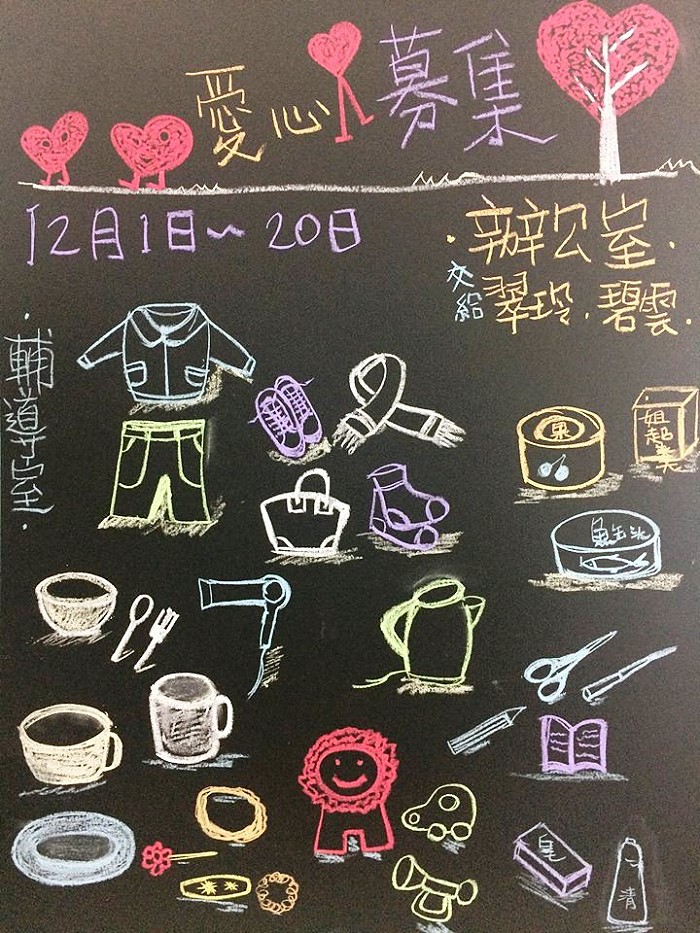 愛心募集
12月1日~20日
·辦公室·
交給 翠玲·碧雲·
·輔導室·
果
魚缶
皂
清